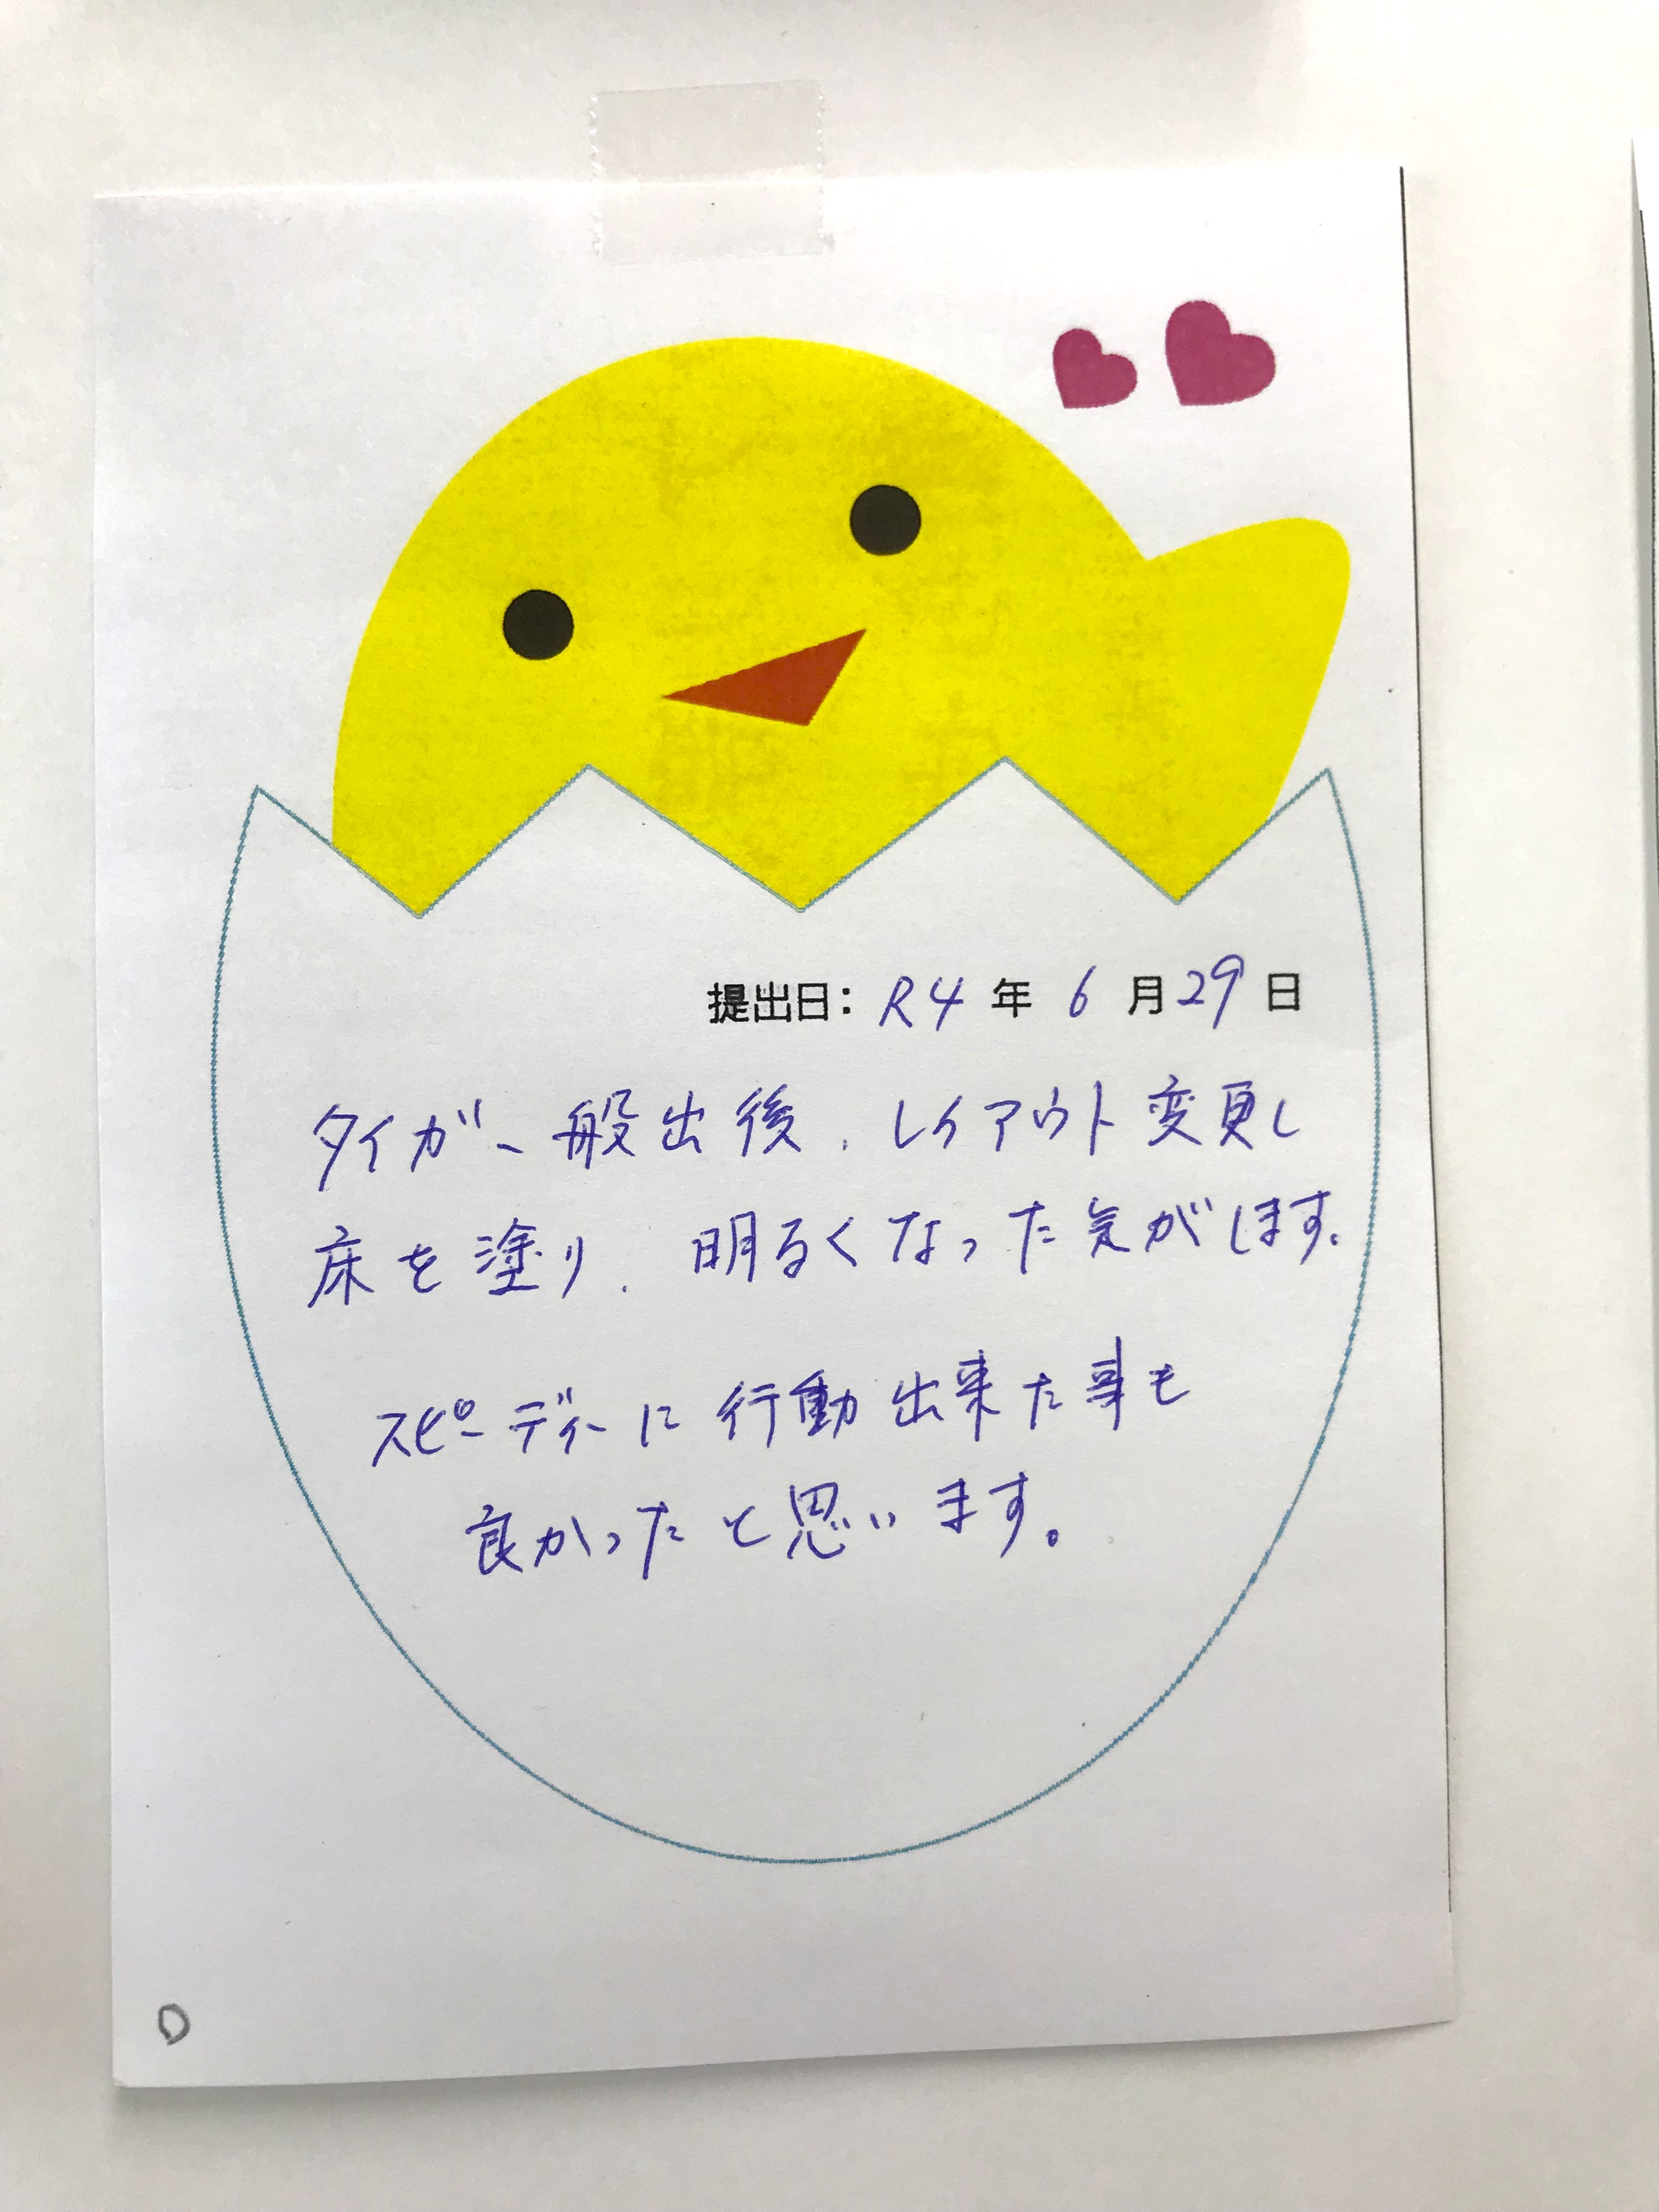 提出日: R4 年 6 月 29 日
タイガー般出後、レイアウト変更し
床を塗り、明るくなった気がします。
スピーディーに行動出来た事も
良かったと思います。